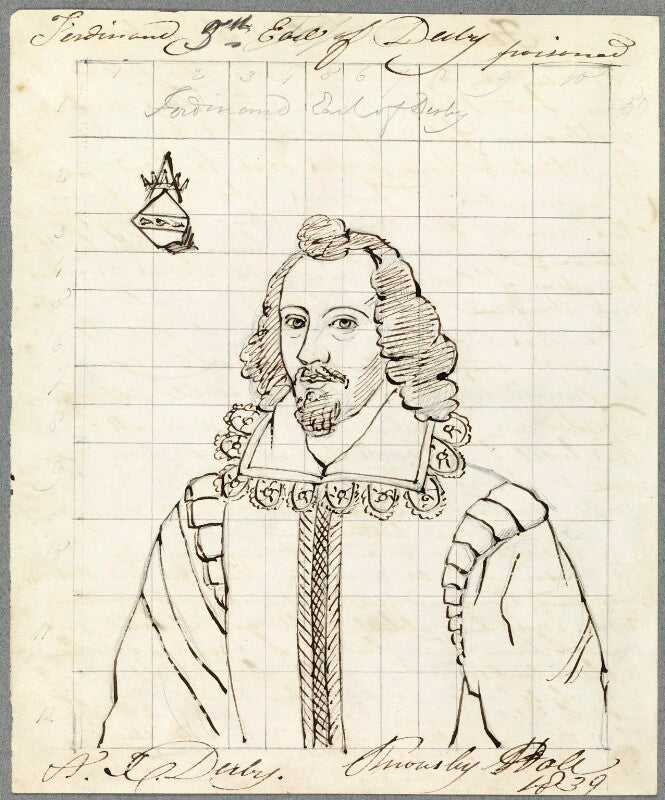 Ferdinand 5th Earl of Derby poisoned
1 2 3 4 5 6 7 8 9 10
1
Ferdinand Earl of Derby
2
3
4
5
6
7
8
9
10
11
12
F. Derby. Knowsley Hall
1839